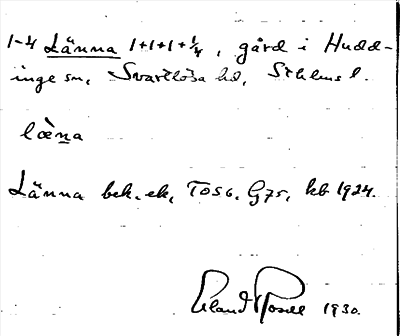 1-4 Länna 1+1+1+¼, gård i Hudd-
inge sn, Svartlösa hd, Sthlms l.
lὰna
Länna bek. ek, TOSG. G75, kb 1924.
Erland Rosell 1930.